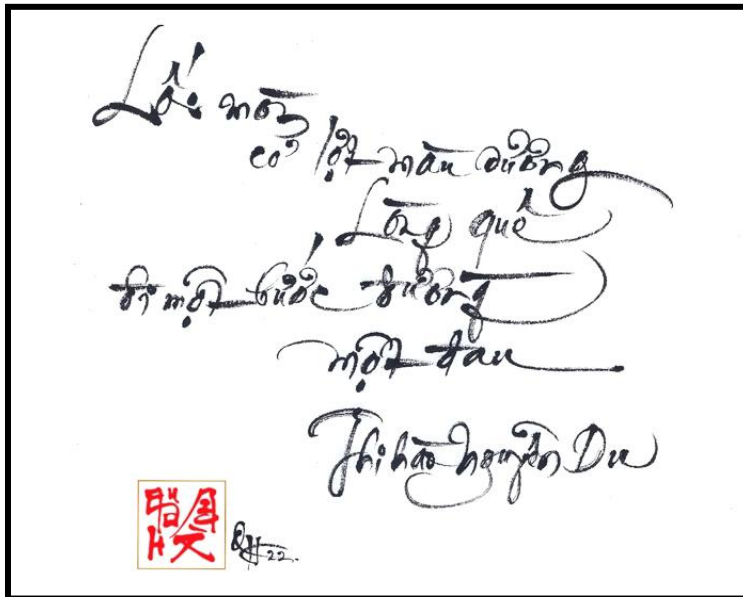 Lối mòn
cỏ lợt màu sương
Lòng quê
đi một bước đường
một đau
Thi hào Nguyễn Du
QH 22.